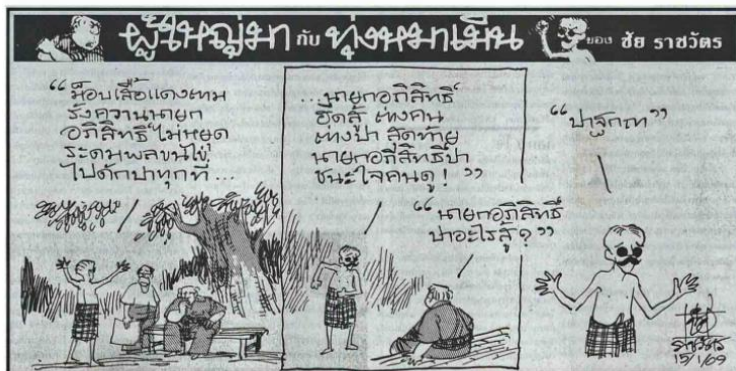 ผู้ใหญ่มา กับ ทุ่งหมาเมิน ของ ชัย ราชวัตร
“ม็อบเสื้อแดงตาม
รังควานนายก
อภิสิทธิ์ไม่หยุด
ระดมพลขนไข่
ไปดักปาทุกที่...
...นายกอภิสิทธิ์
ฮึดสู้ ต่างคน
ต่างปา สุดท้าย
นายกอภิสิทธิ์ปา
ชนะใจคนดู!”
“นายกอภิสิทธิ์
ปาอะไรสู้?”
“ปาฐกถา”
ชัย
ราชวัตร
15/1/69